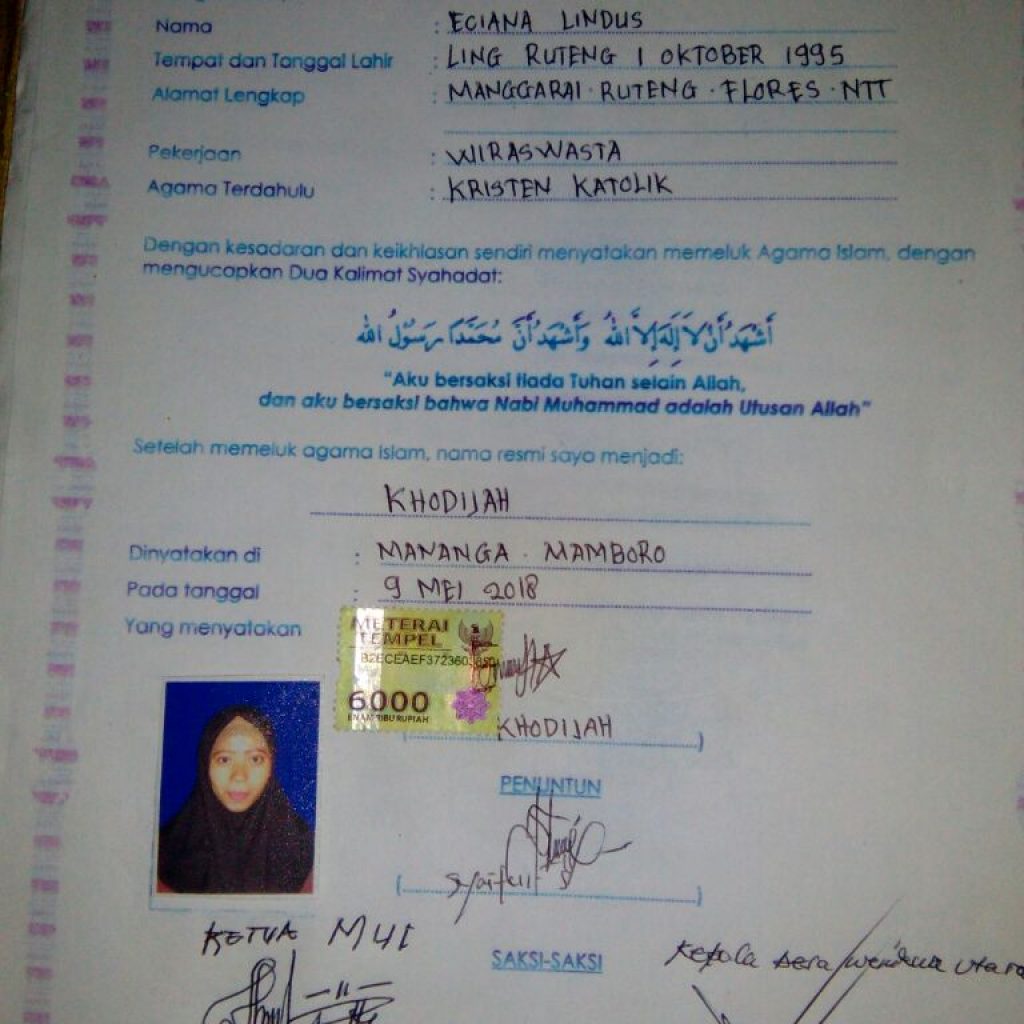 Nama : ECIANA LINDUS
Tempat dan Tanggal Lahir : LING RUTENG 1 OKTOBER 1995
Alamat Lengkap : MANGGARAI · RUTENG · FLORES · NTT
Pekerjaan : WIRASWASTA
Agama Terdahulu : KRISTEN KATOLIK
Dengan kesadaran dan keikhlasan sendiri menyatakan memeluk Agama Islam, dengan
mengucapkan Dua Kalimat Syahadat:
أَشْهَدُ أَنْ لَا إِلَهَ إِلَّا اللهُ وَأَشْهَدُ أَنَّ مُحَمَّدًا رَسُوْلُ اللهِ
"Aku bersaksi tiada Tuhan selain Allah,
dan aku bersaksi bahwa Nabi Muhammad adalah Utusan Allah"
Setelah memeluk agama Islam, nama resmi saya menjadi:
KHODIJAH
Dinyatakan di : MANANGA · MAMBORO
Pada tanggal : 9 MEI 2018
Yang menyatakan
METERAI
TEMPEL
6000
ENAM RIBU RUPIAH
(KHODIJAH)
PENUNTUN
KETUA MUI
SAKSI-SAKSI
Kepala Desa Utara